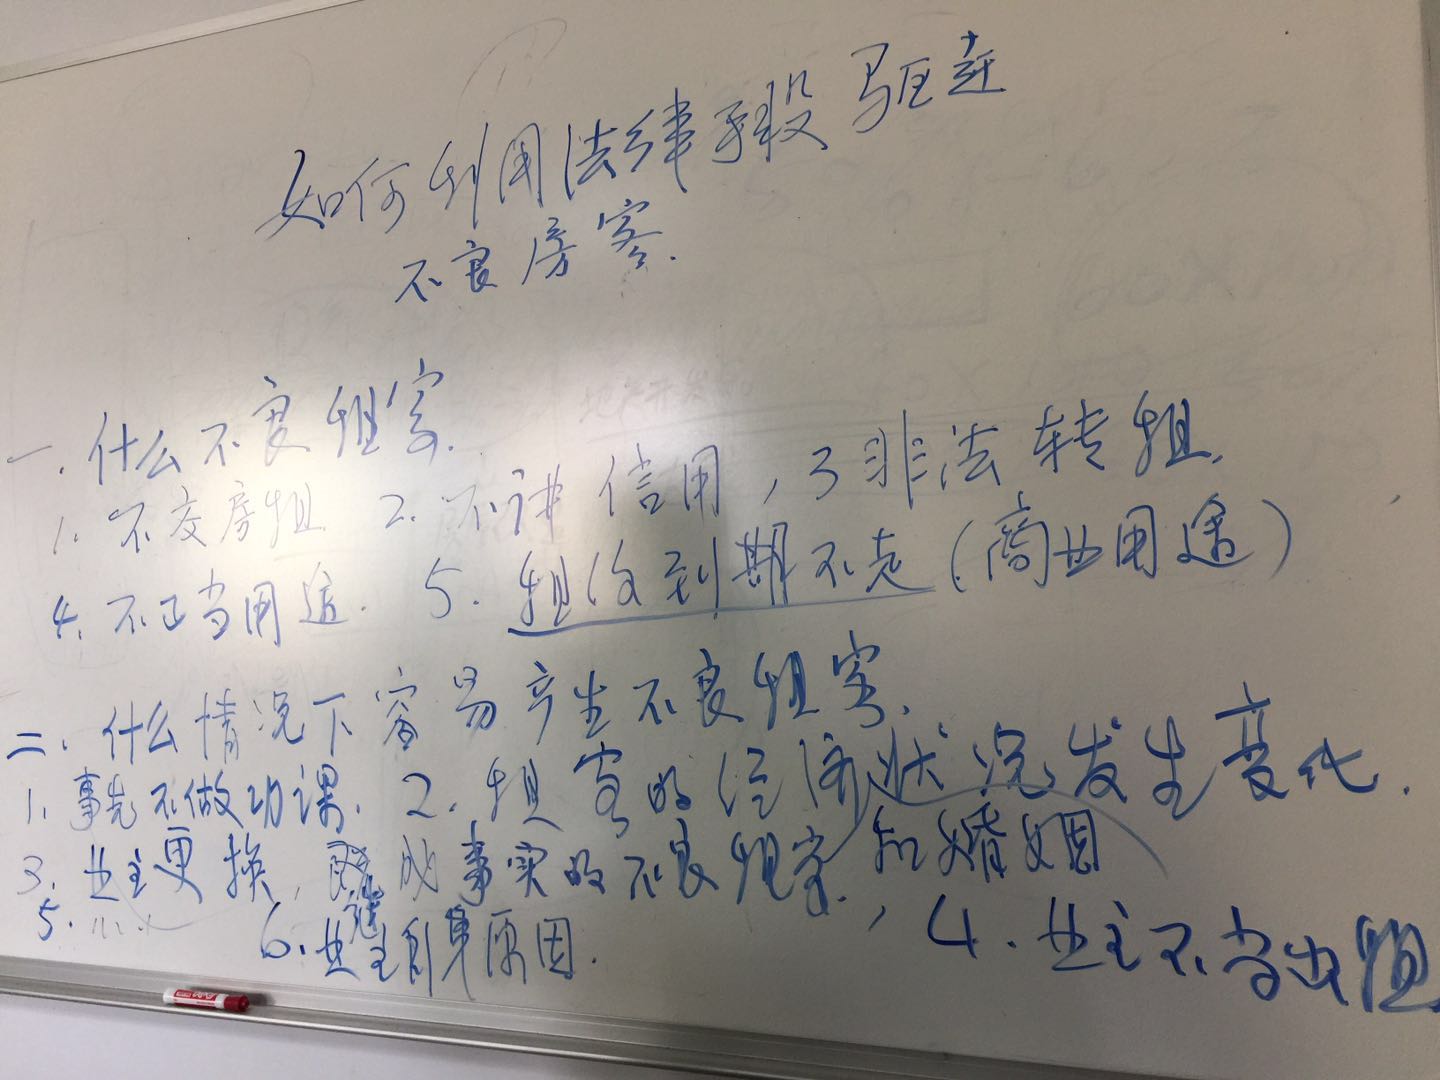 如何利用法律手段驱赶
不良房客.
一.什么不良租客.
1.不交房租 2.不讲信用,3非法转租.
4.不正当用途. 5.租约到期不走(商业用途)
二.什么情况下容易产生不良租客.
1.事先不做功课. 2.租客的经济状况发生变化.
和婚姻
3.业主更换, 成事实的不良租客., 4.业主不当出租
5. 6.业主自身原因.